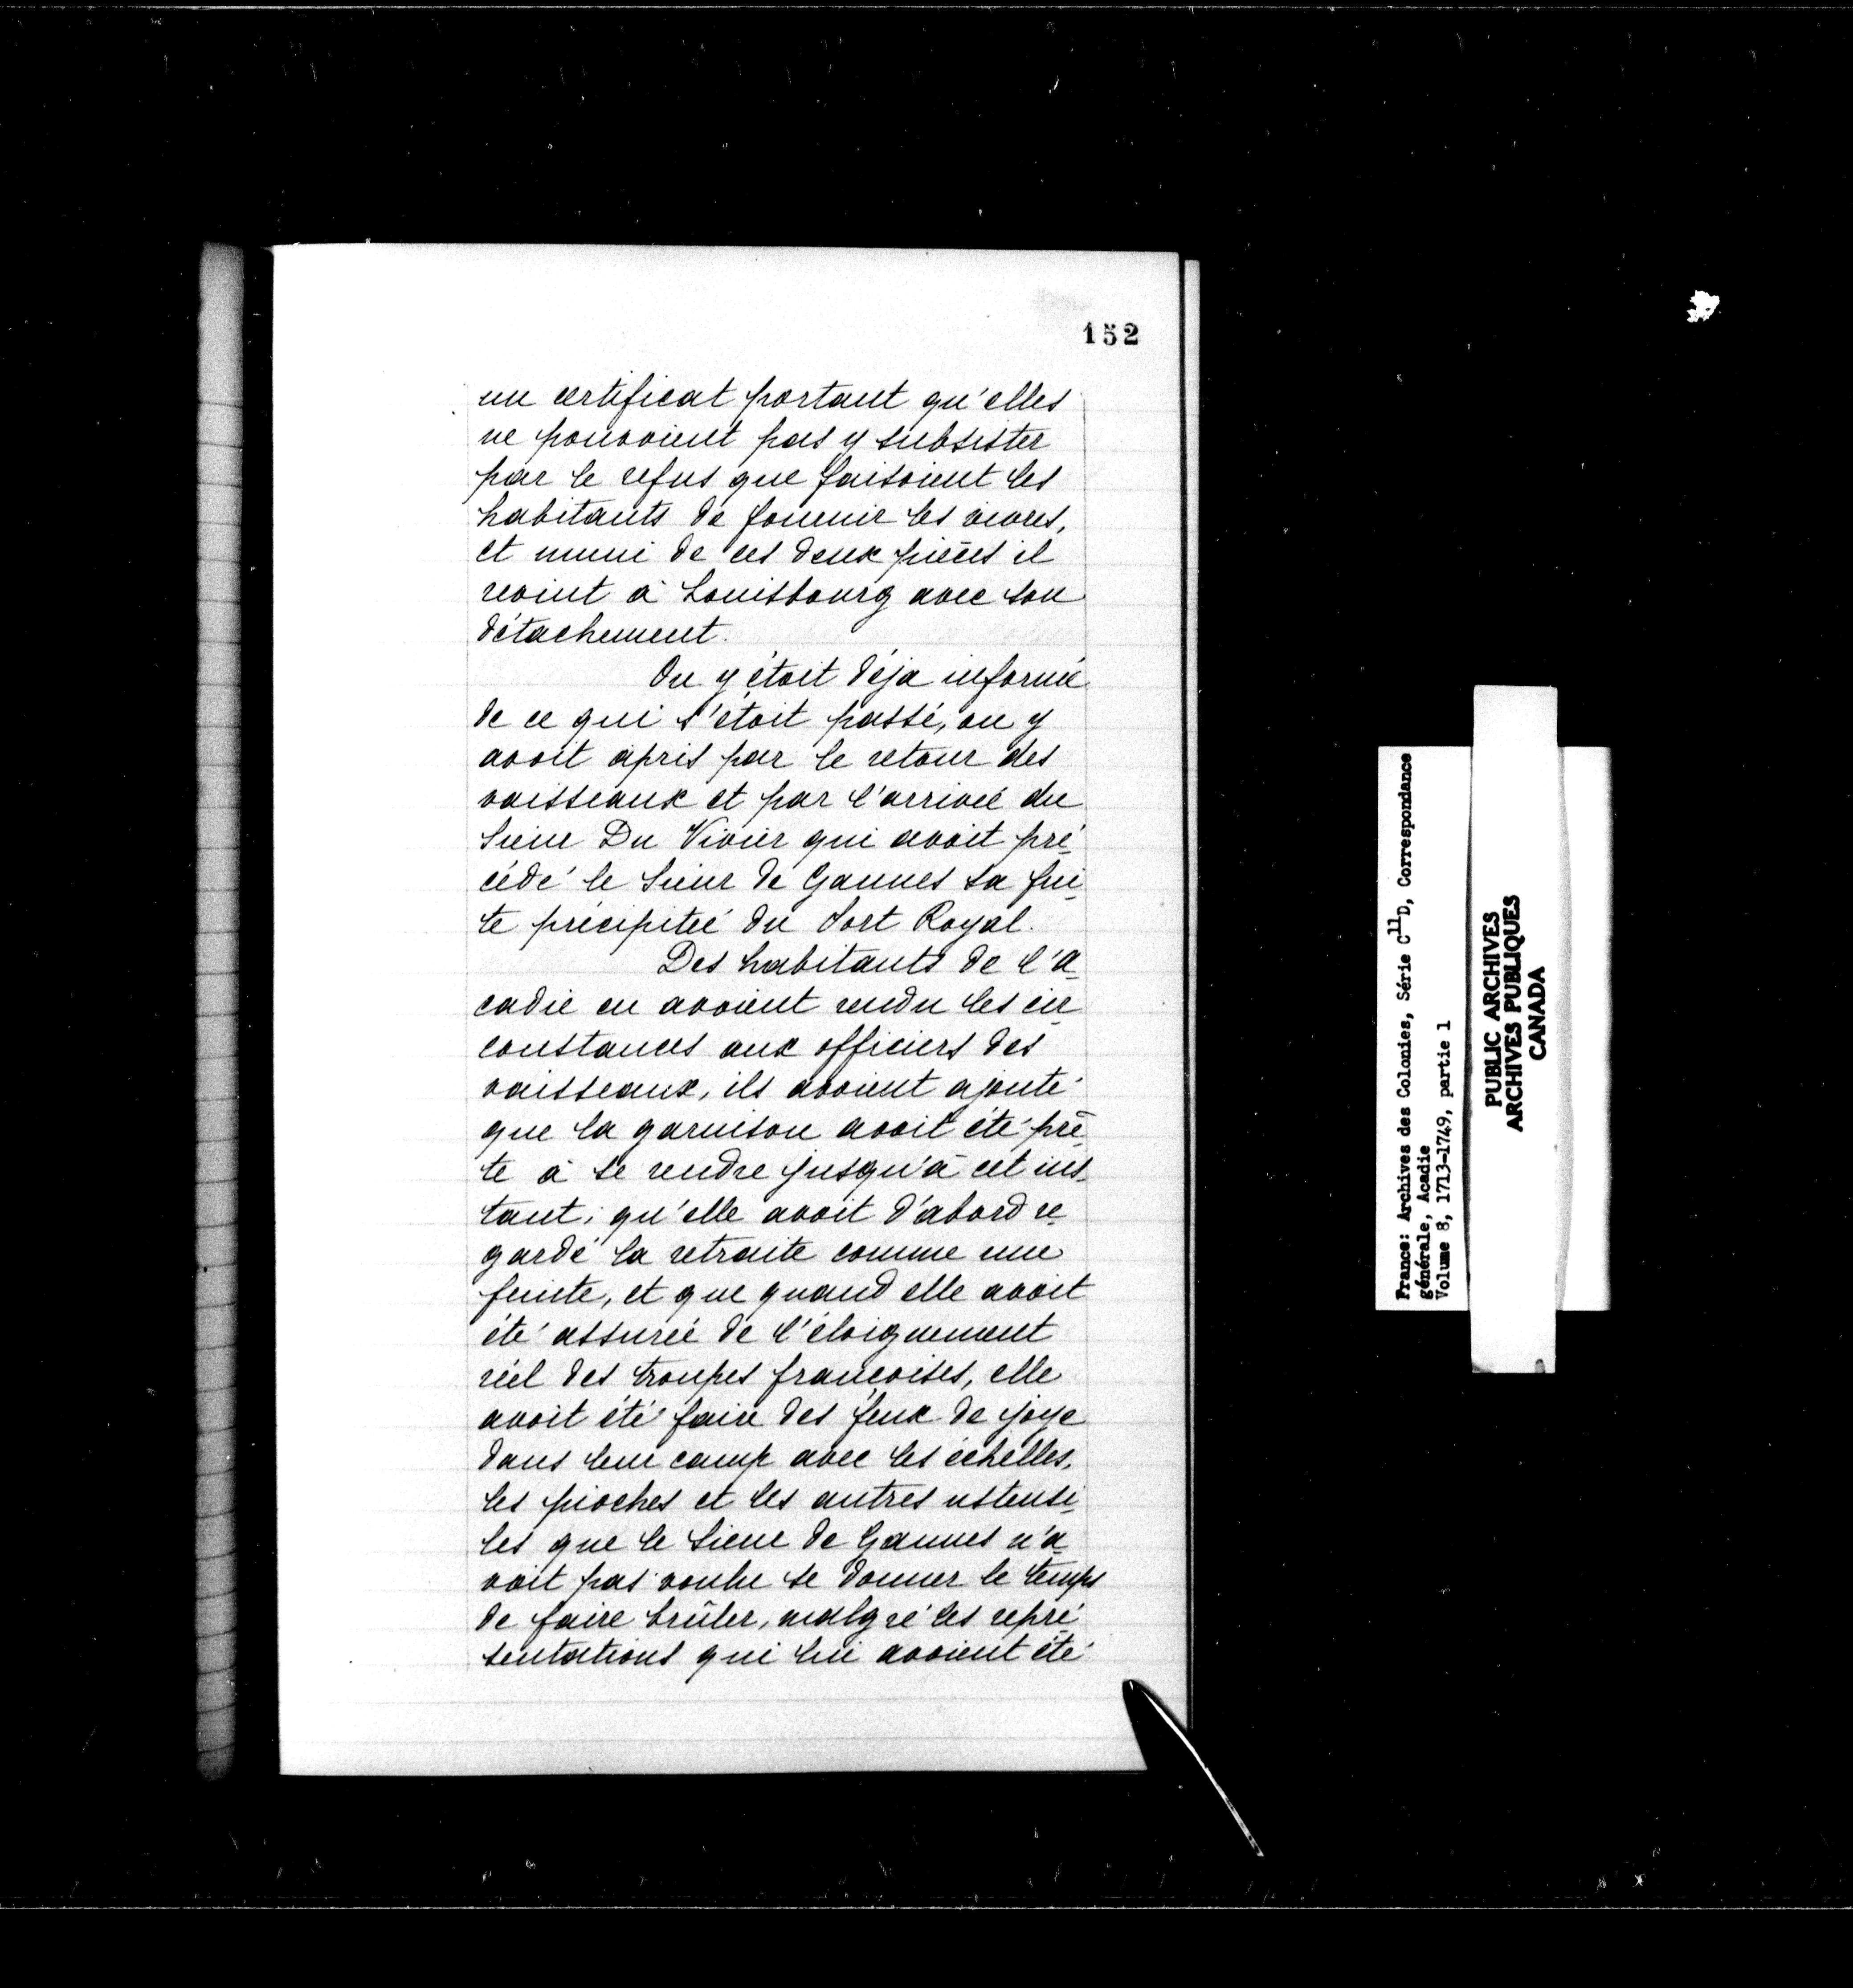 152
un certificat portant qu'elles
ne pouvoient pas y subsister
par le refus que faisoient les
habitants de fournir les vivres,
et muni de ces deux pièces il
revint à Louisbourg avec son
détachement.
On y étoit déja informé
de ce qui s'étoit passé, on y
avoit apris par le retour des
vaisseaux et par l'arrivée du
Sieur Du Vivier qui avoit pré-
cédé le Sieur de Gannes sa fui-
te précipitée du Port Royal.
Des habitants de l'A-
cadie en avoient rendu les cir
constances aux officiers des
vaisseaux, ils avoient ajouté
que la garnison avoit été prê-
te à se rendre jusqu'à cet ins-
tant; qu'elle avoit d'abord re-
gardé la retraite comme une
feinte, et que quand elle avoit
été assurée de l'éloignement
réel des troupes françoises, elle
avoit été faire des feux de joye
dans leur camp avec les échelles,
les pioches et les autres ustensi-
les que le Sieur de Gannes n'a-
voit pas voulu se donner le temps
de faire brûler, malgré les repré-
sentations qui lui avoient été
France: Archives des Colonies, Série C11D, Correspondance
générale, Acadie
Volume 8, 1713-1749, partie 1
PUBLIC ARCHIVES
ARCHIVES PUBLIQUES
CANADA